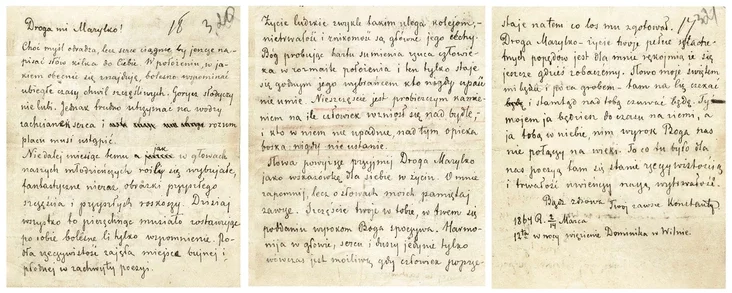 Droga mi Marylko!
18
3,20
Choć myśl odradza, lecz serce ciągnie bym jeszcze na-
pisał słów kilka do Ciebie. W położeniu, w ja-
kiem obecnie się znajduję, bolesno wspominać
ubiegłe czasy chwil szczęśliwych. Gorycz słodyczy
nie lubi. Jednak trudno utrzymać na wodzy
serca i rozum
placu musi ustąpić.
Niedalej miesiąc temu jak w głowach
naszych młodzieńczych roiły się wybujałe,
fantastyczne nieraz obrazki przyszłego
szczęścia i przyszłych roskoszy. Dzisiaj
wszystko to pierzchnąć musiało zostawując
po sobie bolesne li tylko wspomnienie.
rzeczywistość zajęła miejsce bujnej i
płodnej w zachwyty poezyi.
Życie ludzkie zwykle takim ulega kolejom,-
nietrwałość i znikomość są główne jego cechy.
Bóg probując hartu sumienia rzuca człowie-
ka w rozmaite położenia i ten tylko staje
się godnym jego wybrańcem kto nigdy upaść
nie umie. Nieszczęście jest probierczym kamie-
niem na ile człowiek wzniosł się nad bydlę,-
i kto w niem nie upadnie, nad tym opieka
boska nigdy nie ustanie.
Słowa powyższe przyjmij Droga Marylko
jako wskazówkę dla siebie w życiu. O mnie
zapomnij, lecz o słowach moich pamiętaj
zawsze. Szczęście twoje w tobie, w twem się
poddaniu wyrokom Boga spoczywa. Harmo-
nija w głowie, sercu i duszy jedynie tylko
wowczas jest możliwą gdy człowiek poprze-
staje na tem co los mu zgotował.
Droga Marylko - życie twoje pełne szlache-
tnych popędów jest dla mnie rękojmią że się
jeszcze gdzieś zobaczemy. Słowo moje święte
mi będzie i poza grobem - tam na Cię czekać
i stamtąd nad tobą czuwać będę. Ty
mojem ja będziesz do czasu na ziemi, a
ja tobą w niebie, nim wyrok Boga nas
nie połączy na wieki. To co tu było dla
nas poezyą tam się stanie rzeczywistością
i trwałość uwieńczy naszą wytrwałość.
Bądź zdrowa
Twoj zawsze Konstanty
1864 R. 2/14 Marca
12ta w nocy więzienie Dominika w Wilnie